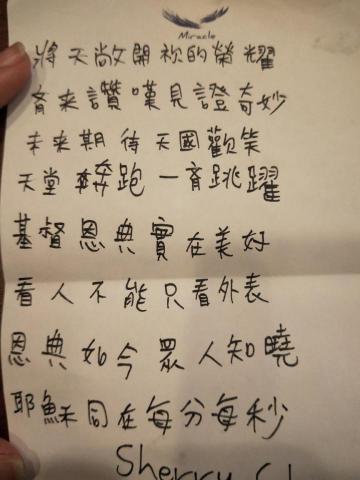 Miracle
將天敞開祢的榮耀
齊来讚嘆見證奇妙
未来期待天國歡笑
天堂奔跑一齊跳躍
基督恩典實在美好
看人不能只看外表
恩典如今眾人知曉
耶穌同在每分每秒
Sherry